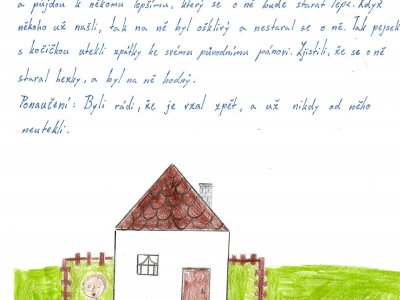 a půjdou k někomu lepšímu, který se o ně bude starat lépe. Když
někoho už našli, tak na ně byl ošklivý a nestaral se o ně. Tak pejsek
s kočičkou utekli zpátky ke svému původnímu pánovi. Zjistili, že se o ně
staral hezky, a byl na ně hodný.
Ponaučení: Byli rádi, že je vzal zpět, a už nikdy od něho
neutekli.